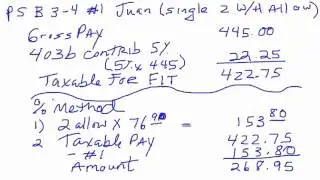 PSB 3-4 #1 Juan (single 2 W/H Allow)
Gross Pay 445.00
403b contrib 5% 22.25
(5% x 445)
Taxable For FIT 422.75
% Method
1) 2 allow x 76.90 = 153.80
2 Taxable Pay 422.75
- #1 153.80
Amount 268.95